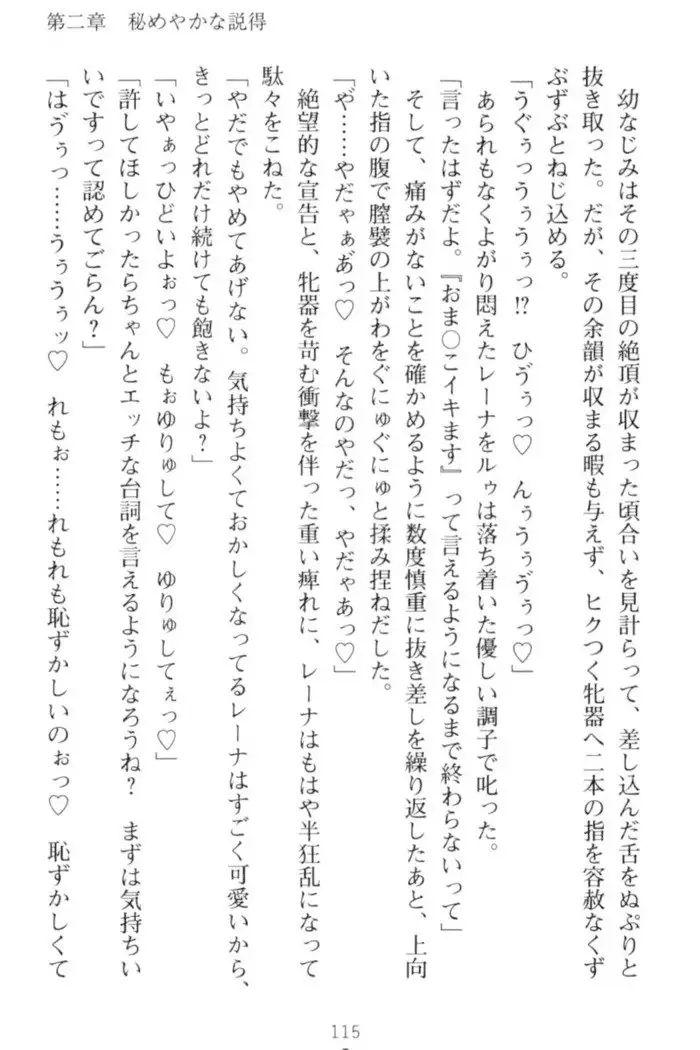 第二章　秘めやかな説得
幼なじみはその三度目の絶頂が収まった頃合いを見計らって、差し込んだ舌をぬぷりと
抜き取った。だが、その余韻が収まる暇も与えず、ヒクつく牝器へ二本の指を容赦なくず
ぶずぶとねじ込める。
「うぐぅっうぅうぅっ!?　ひゔぅっ♡　んぅうぅゔぅっ♡」
あられもなくよがり悶えたレーナをルゥは落ち着いた優しい調子で叱った。
「言ったはずだよ。『おま〇こイキます』って言えるようになるまで終わらないって」
そして、痛みがないことを確かめるように数度慎重に抜き差しを繰り返したあと、上向
いた指の腹で膣襞の上がわをぐにゅぐにゅと揉み捏ねだした。
「や゛……やだゃぁあ゛っ♡　そんなのやだっ、やだゃあっ♡」
絶望的な宣告と、牝器を苛む衝撃を伴った重い痺れに、レーナはもはや半狂乱になって
駄々をこねた。
「やだでもやめてあげない。気持ちよくておかしくなってるレーナはすごく可愛いから、
きっとどれだけ続けても飽きないよ？」
「いやぁっひどいよぉっ♡　もぉゆりゅして♡　ゆりゅしてぇっ♡」
「許してほしかったらちゃんとエッチな台詞を言えるようになろうね？　まずは気持ちい
いですって認めてごらん？」
「はゔぅっ……うぅうぅッ♡　れもぉ……れもれも恥ずかしいのぉっ♡　恥ずかしくて
115